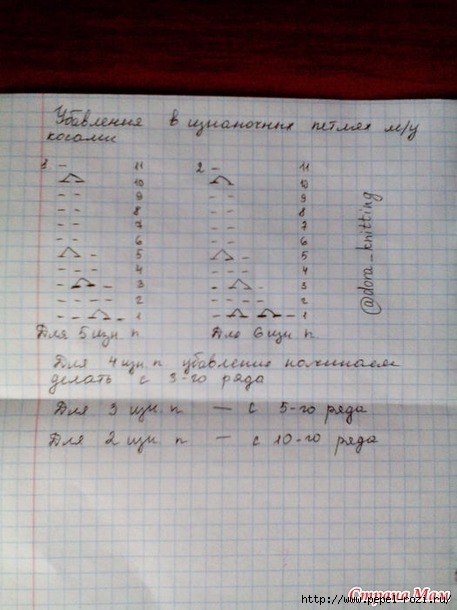 Убавления в изнаночных петлях м/у
косами
1 – 11
10
9
8
7
6
5
4
3
2
1
Для 5 изн. п
2 – 11
10
9
8
7
6
5
4
3
2
1
Для 6 изн. п
@dora_knitting
Для 4 изн. п убавления начинаем
делать с 3-го ряда
Для 3 изн. п — с 5-го ряда
Для 2 изн. п — с 10-го ряда
Страна Мам
http://www.pepel-rozi.ru/